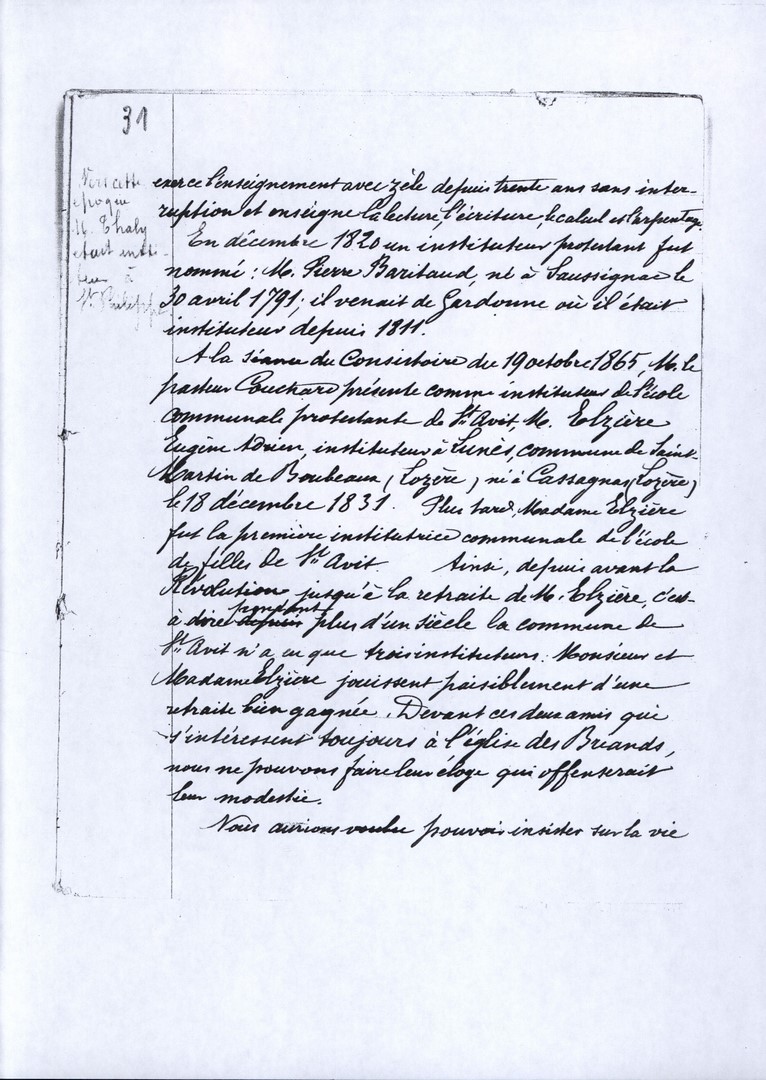 31
Vers cette
époque
M. Thaly
était insti-
teur à
St. Philippe
exerce l'enseignement avec zèle depuis trente ans sans inter-
ruption et enseigne la lecture, l'écriture, le calcul et l'arpentage.
En décembre 1820 un instituteur protestant fut
nommé : M. Pierre Baritaud, né à Saussignac le
30 avril 1791; il venait de Gardonne où il était
instituteur depuis 1811.
A la séance du Consistoire du 19 octobre 1865, M. le
pasteur Couchard présente comme instituteur de l'école
communale protestante de St Avit, M. Elzière
Eugène Adrien, instituteur à Lunès, commune de Saint-
Martin de Boubeaux (Lozère), né à Cassagnas (Lozère)
le 18 décembre 1831. Plus tard, Madame Elzière
fut la première institutrice communale de l'école
de filles de St Avit. Ainsi, depuis avant la
Révolution jusqu'à la retraite de M. Elzière, c'est-
à dire depuis pendant plus d'un siècle la commune de
St Avit n'a eu que trois instituteurs. Monsieur et
Madame Elzière jouissent paisiblement d'une
retraite bien gagnée. Devant ces deux amis qui
s'intéressent toujours à l'église des Briands,
nous ne pouvons faire leur éloge qui offenserait
leur modestie.
Nous aurions voulu pouvoir insister sur la vie